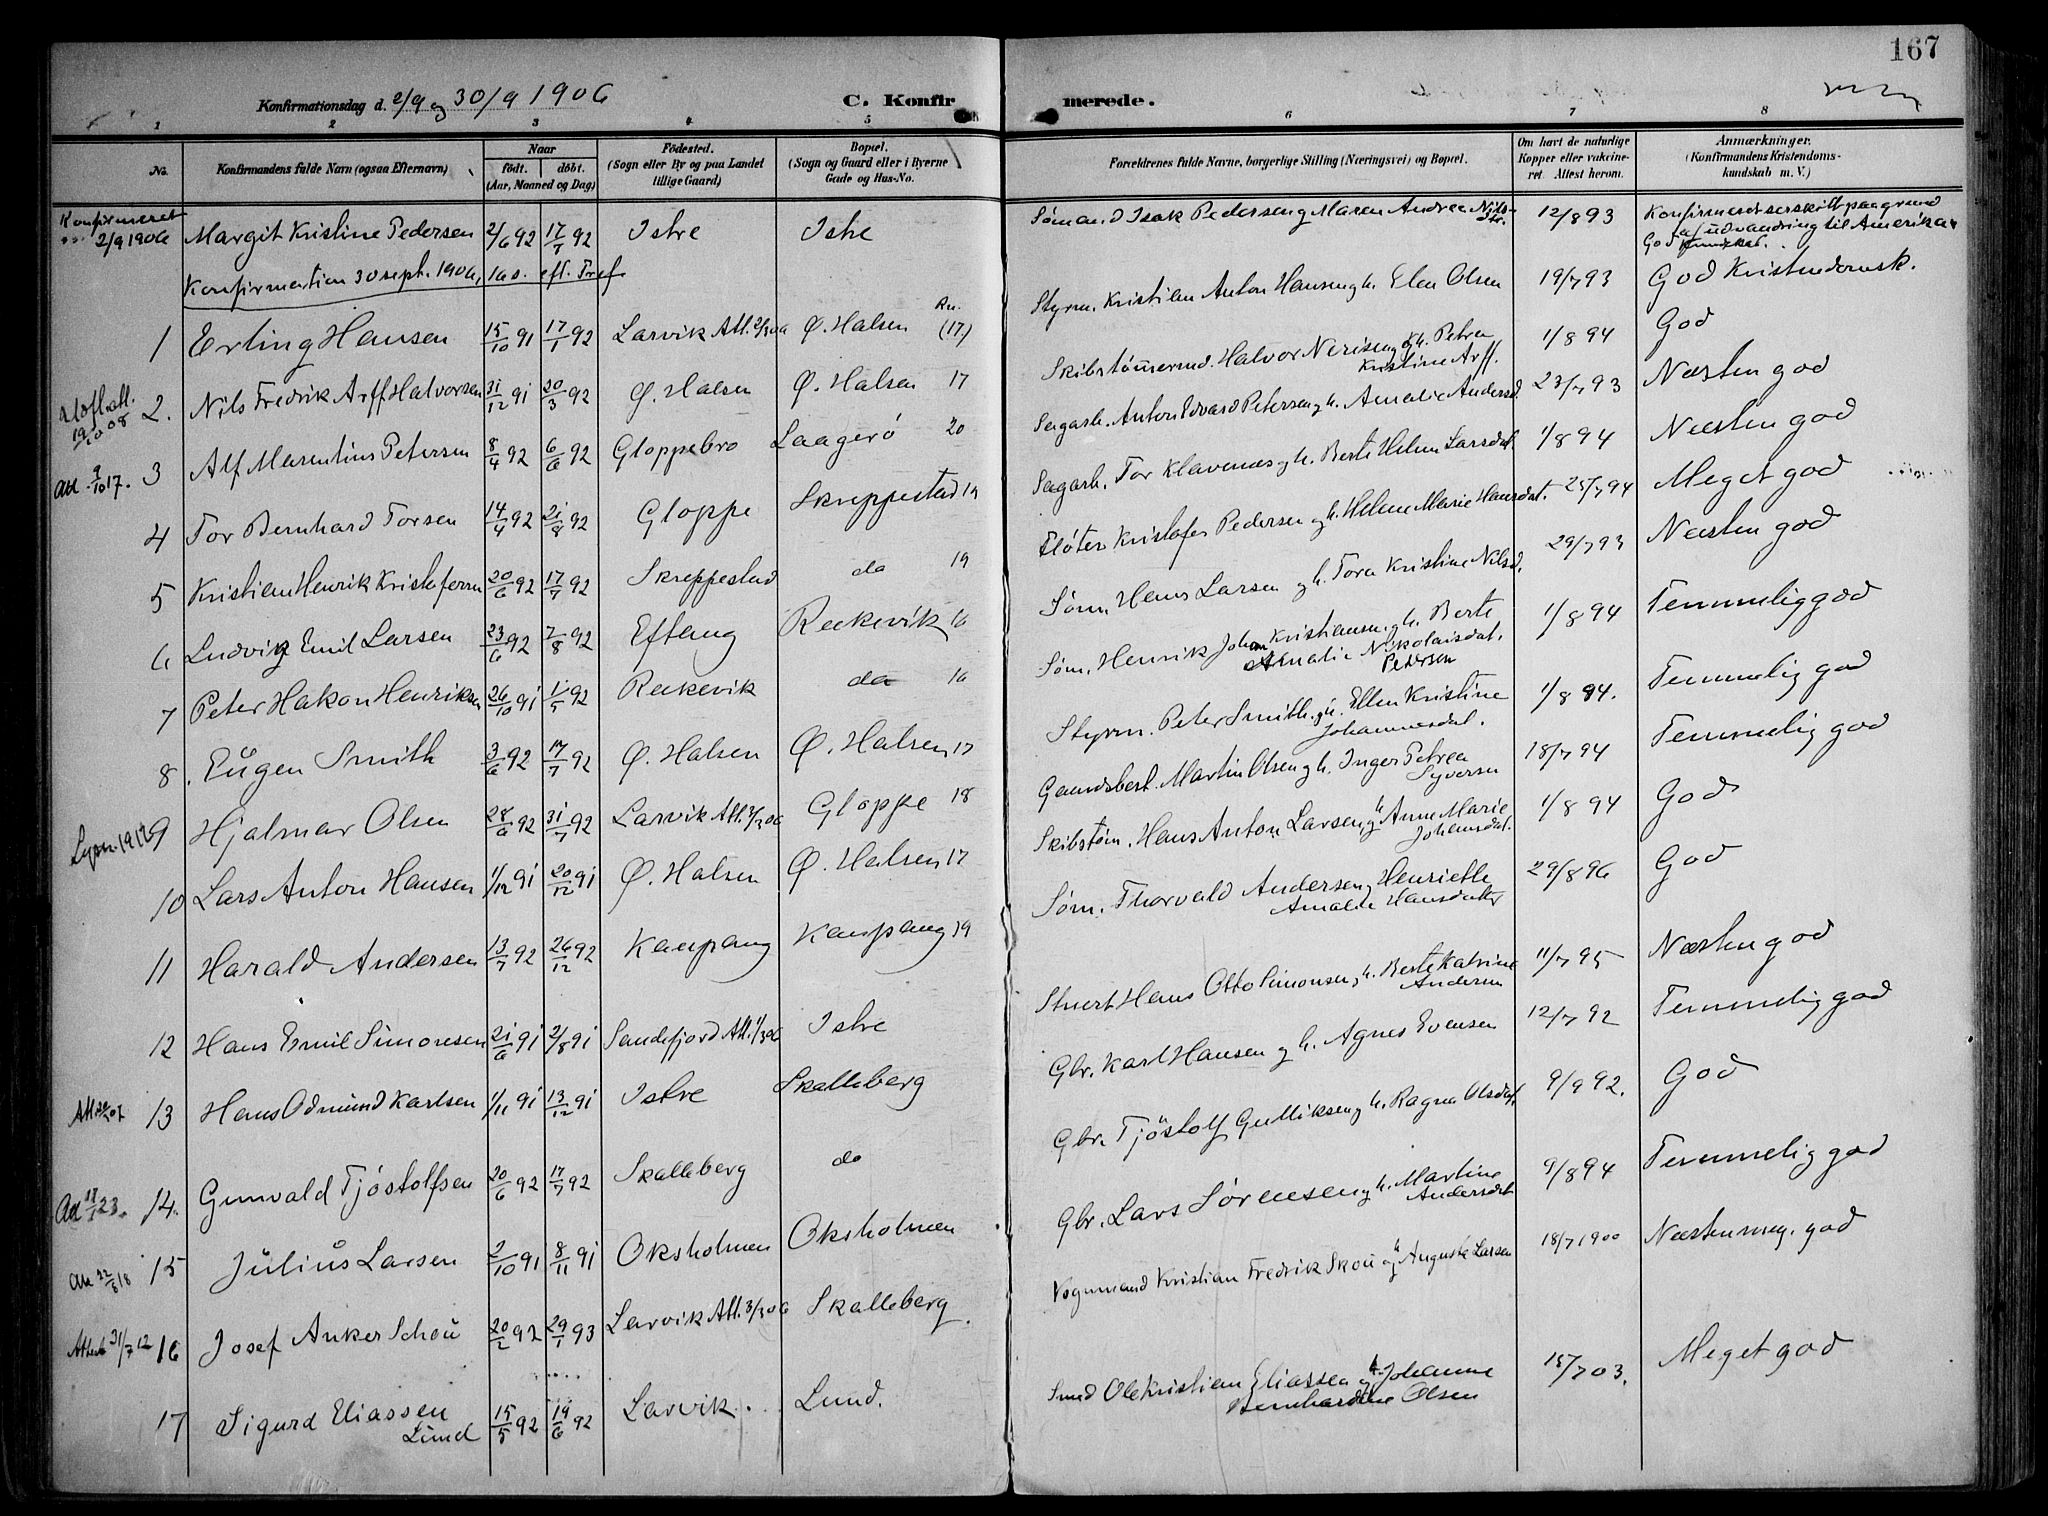 167
Konfirmationsdag d. 2/9 og 30/9 1906 C. Konfirmerede.
1 2 3 4 5 6 7 8
No. Konfirmandens fulde Navn (ogsaa Efternavn) Naar født. døbt. (Aar, Maaned og Dag) Fødested. (Sogn eller By og paa Landet tillige Gaard) Bopæl. (Sogn og Gaard eller i Byerne Gade og Hus-No. Forældrenes fulde Navne, borgerlige Stilling (Næringsvei) og Bopæl. Om havt de naturlige Kopper eller vakcineret. Attest herom. Anmærkninger. (Konfirmandens Kristendomskundskab m. V.)
Konfirmeret 2/9 1906 Margit Kristine Pedersen 2/6 92 17/7 92 Istre Istre Sømand Isak Pedersen og Maren Andrea Nilsdtr. 12/8 93 Konfirmeret særskilt paa grund af udvandring til Amerika. God kundskab.
Konfirmation 30 sept. 1906, 16 s. eft. Tref
1 Erling Hansen 15/10 91 17/1 92 Larvik Att. 2/3 06 Ø. Halsen (17) Styrm. Kristian Anton Hansen og h. Elen Olsen 19/7 93 God Kristendomsk.
2. Nils Fredrik Arff Halvorsen 31/12 91 20/3 92 Ø. Halsen Ø. Halsen 17 Skibstømmermd. Halvor Nerisen og h. Petra Kristine Arff. 1/8 94 God
Att. 9/10 17. 3 Alf Marentius Petersen 8/4 92 6/6 92 Gloppebro Laagerø 20 Sagarb. Anton Edvard Petersen og h. Amalie Andersd. 23/7 93 Næsten god
4 Tor Bernhard Torsen 14/4 92 21/8 92 Gloppe Skreppestad 19 Sagarb. Tor Klavenæs og h. Berte Helene Larsdat. 1/8 94 Næsten god
5 Kristian Henrik Kristofersen 20/6 92 17/7 92 Skreppestad do 19 Fløter Kristofer Pedersen og h. Helene Marie Hansdat. 25/7 94 Meget god
6 Ludvig Emil Larsen 23/6 92 7/8 92 Eftang Rekkevik 16 Søm. Hans Larsen og h. Tora Kristine Nilsd. 29/7 93 Næsten god
7 Peter Hakon Henriksen 26/10 91 1/5 92 Rekkevik do 16 Søm. Henrik Johan Kristiansen og h. Berte Amalie Nikolaisdat. Petersen 1/8 94 Temmelig god
8. Eugen Smith 3/6 92 17/7 92 Ø. Halsen Ø. Halsen 17 Styrm. Peter Smith og h. Ellen Kristine Johannesdat. 1/8 94. Temmelig god
9 Hjalmar Olsen 28/6 92 31/7 92 Larvik Att. 3/3 06 Gloppe 18 Gaardsbest. Martin Olsen og h. Inger Petrea Syversen 18/7 94 Temmelig god
10 Lars Anton Hansen 1/12 91 20/12 91 Ø. Halsen Ø. Halsen 17 Skibstøm. Hans Anton Larsen og h Anne Marie Johansdat. 1/8 94 God
11 Harald Andersen 13/7 92 26/12 92 Kaupang Kaupang 19 Søm. Thorvald Andersen og Henriette Amalie Hansdatter 29/8 96 God
12 Hans Emil Simonesen 21/6 91 2/8 91 Sandefjord Att. 1/3 06 Istre Stuert Hans Otto Simonsen og h. Berte Katrine Andersen 11/7 95 Næsten god
13 Hans Odmund Karlsen 1/11 91 13/12 91 Istre Skalleberg Gbr. Karl Hansen og h. Agnes Evensen 12/7 92 Temmelig god
14. Gunvald Tjøstolfsen 20/6 92 17/7 92 Skalleberg do Gbr. Tjøstolf Gulliksen og h. Ragna Olsdat. 9/9 92. God
15 Julius Larsen 2/10 91 8/11 91 Oksholmen Oksholmen Gbr. Lars Sørensen og h. Martine Andersdat 9/8 94 Temmelig god
Attest 31/7 12 16 Josef Anker Schou 20/2 92 29/1 93 Larvik Att. 3/3 06 Skalleberg. Vognmand Kristian Fredrik Skou og h Auguste Larsen 18/7 1900 Næsten meg. god
17 Sigurd Eliassen Lund 15/5 92 19/6 92 Larvik. Lund. Smed Ole Kristian Eliassen og h. Johanne Bernhardine Olsen 15/7 03. Meget god